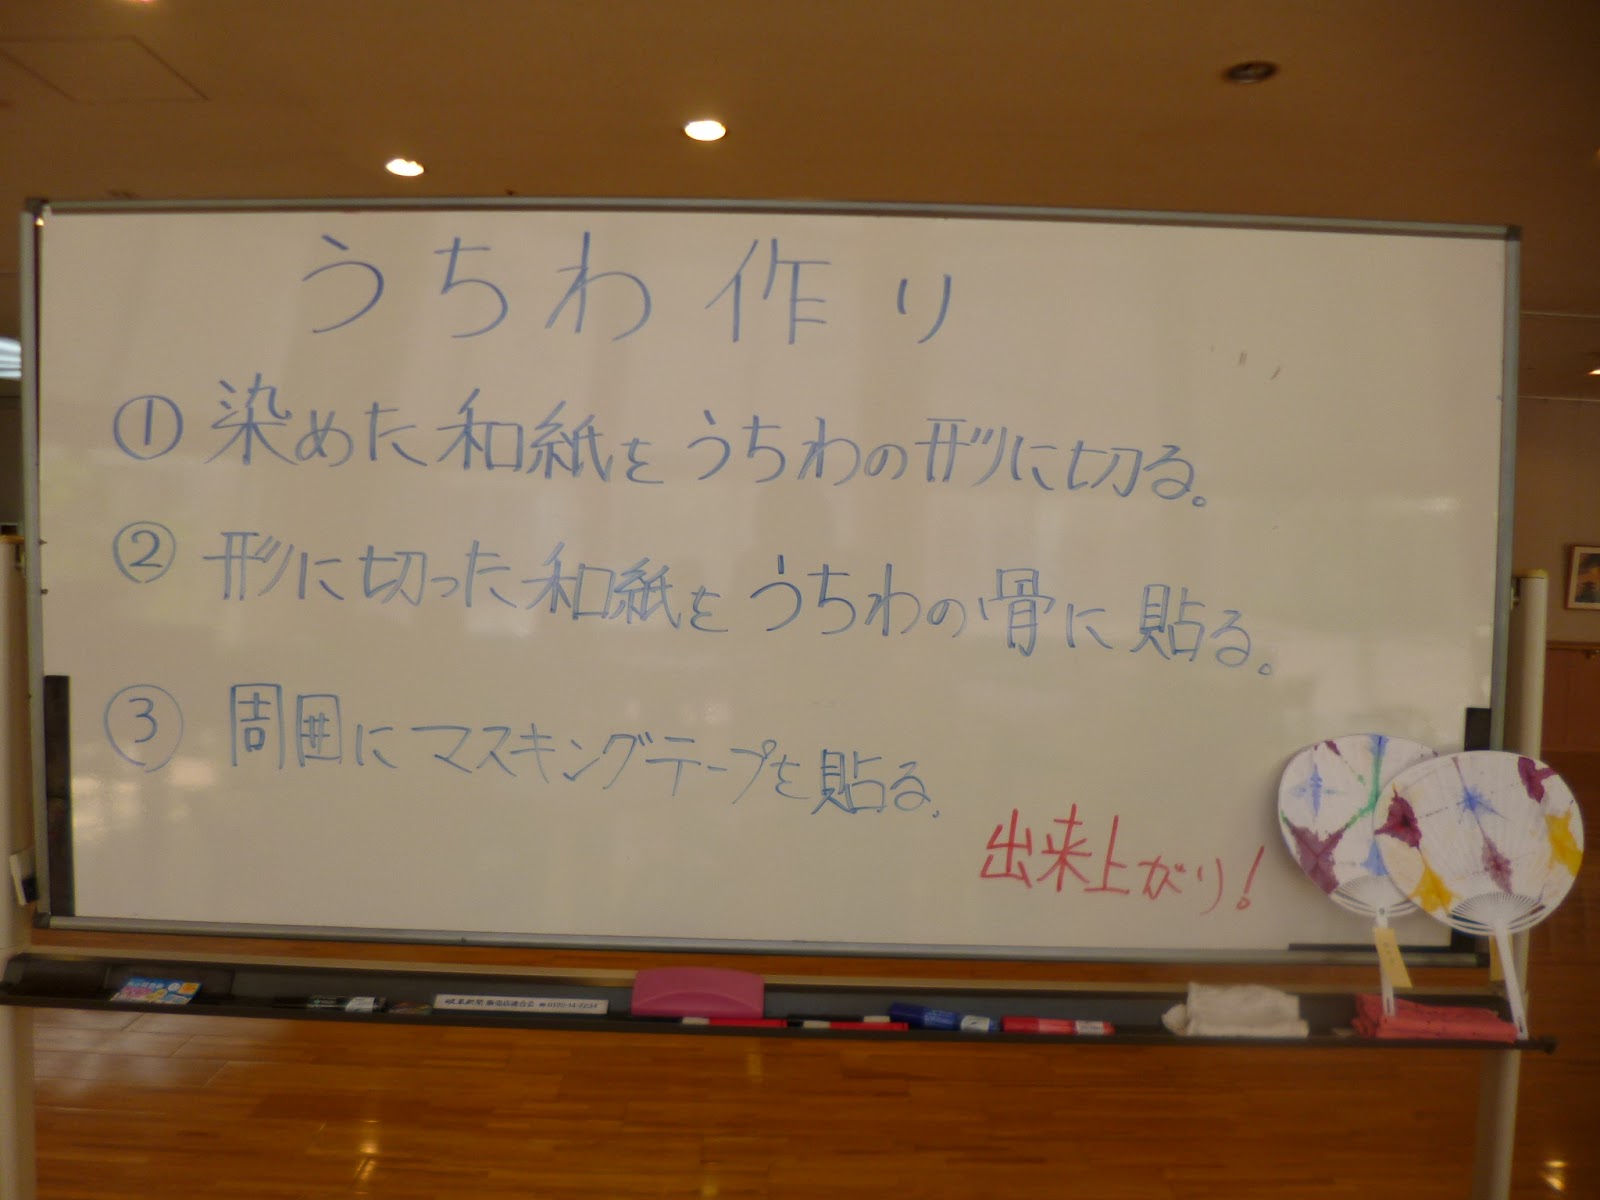 うちわ作り
①染めた和紙をうちわの形に切る。
②形に切った和紙をうちわの骨に貼る。
③周囲にマスキングテープを貼る。
出来上がり!